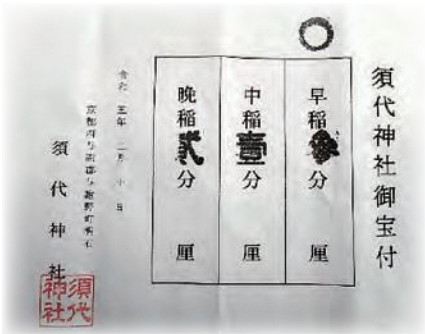 須代神社御宝付
早稲参分 厘
中稲壹分 厘
晩稲貳分 厘
令和 五年 二月 十 日
京都府与謝郡与謝野町明石
須代神社
須代神社